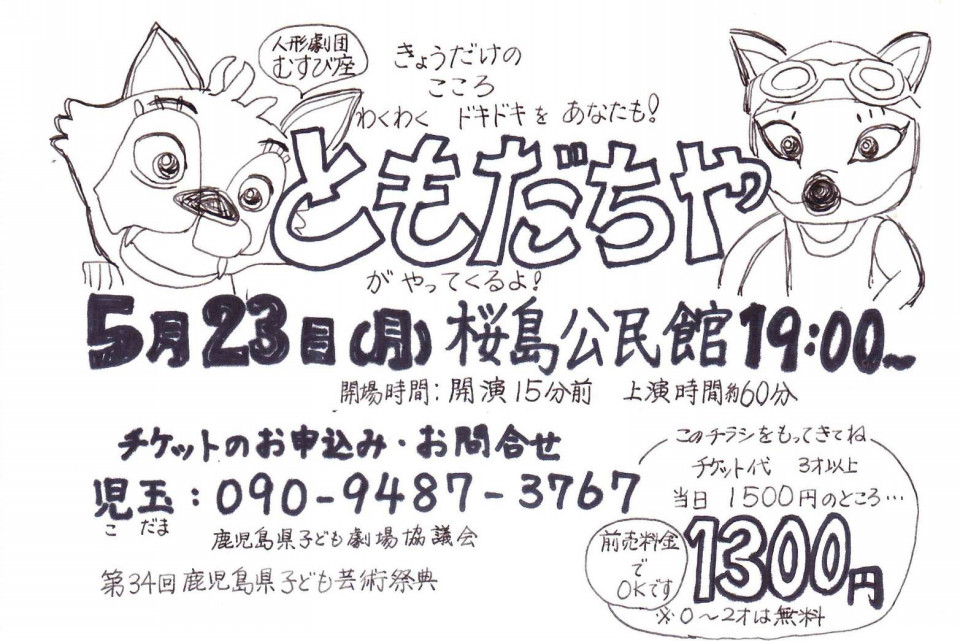 人形劇団
むすび座
きょうだけの
こころ
わくわく ドキドキを あなたも!
ともだちや
がやってくるよ!
5月23日(月) 桜島公民館 19:00~
開場時間:開演15分前 上演時間約60分
チケットのお申込み・お問合せ
児玉:090-9487-3767
こ だま
鹿児島県子ども劇場協議会
第34回鹿児島県子ども芸術祭典
このチラシをもってきてね
チケット代 3才以上
当日 1500円のところ…
前売料金
で
OKです
1300円
※0~2才は無料